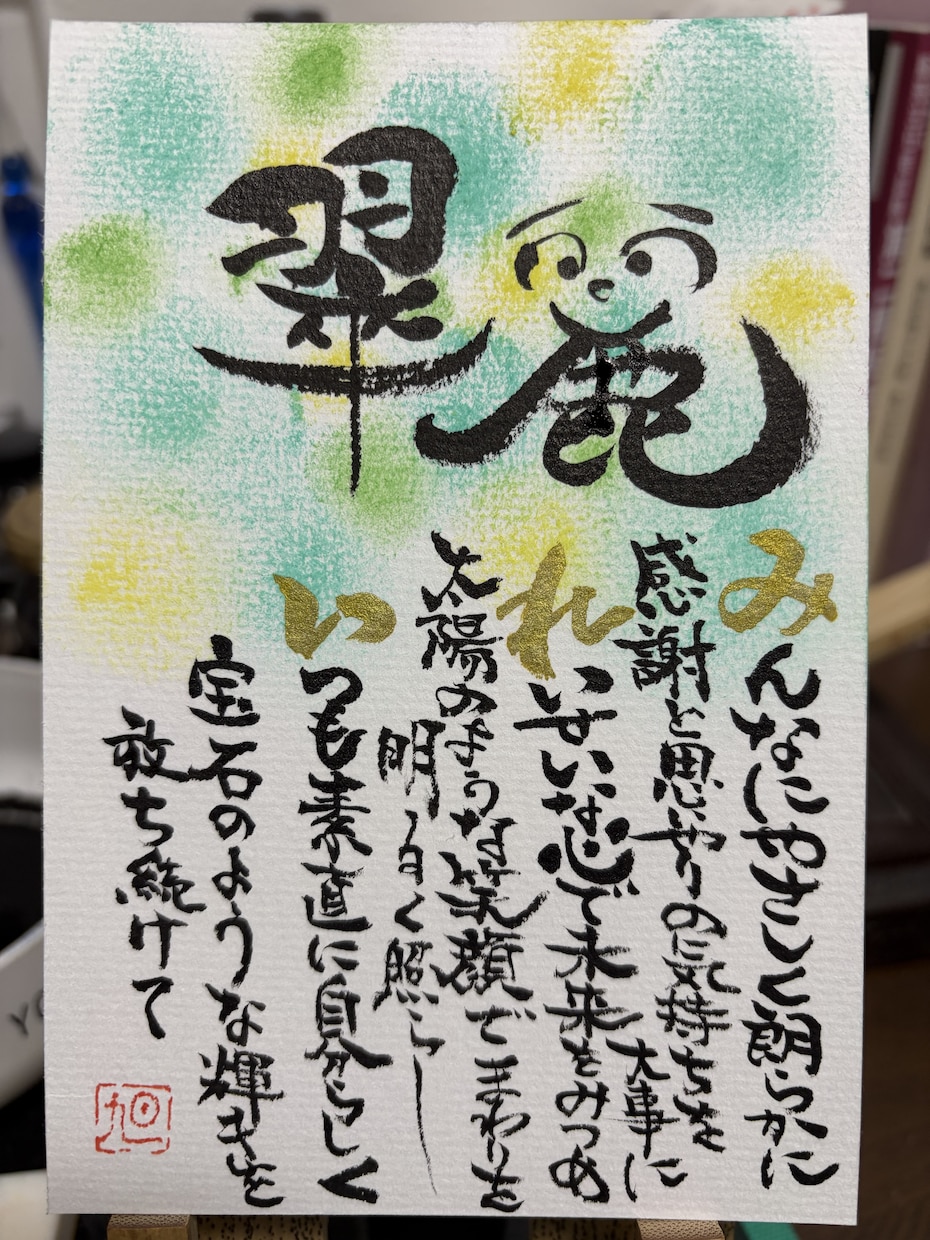 翠麗
みんなにやさしく朗らかに
感謝と思いやりの気持ちを
大事に
れいせいな心で未来をみつめ
太陽のような笑顔でまわりを
明るく照らし
いつも素直に自分らしく
宝石のような輝きを
放ち続けて
旭